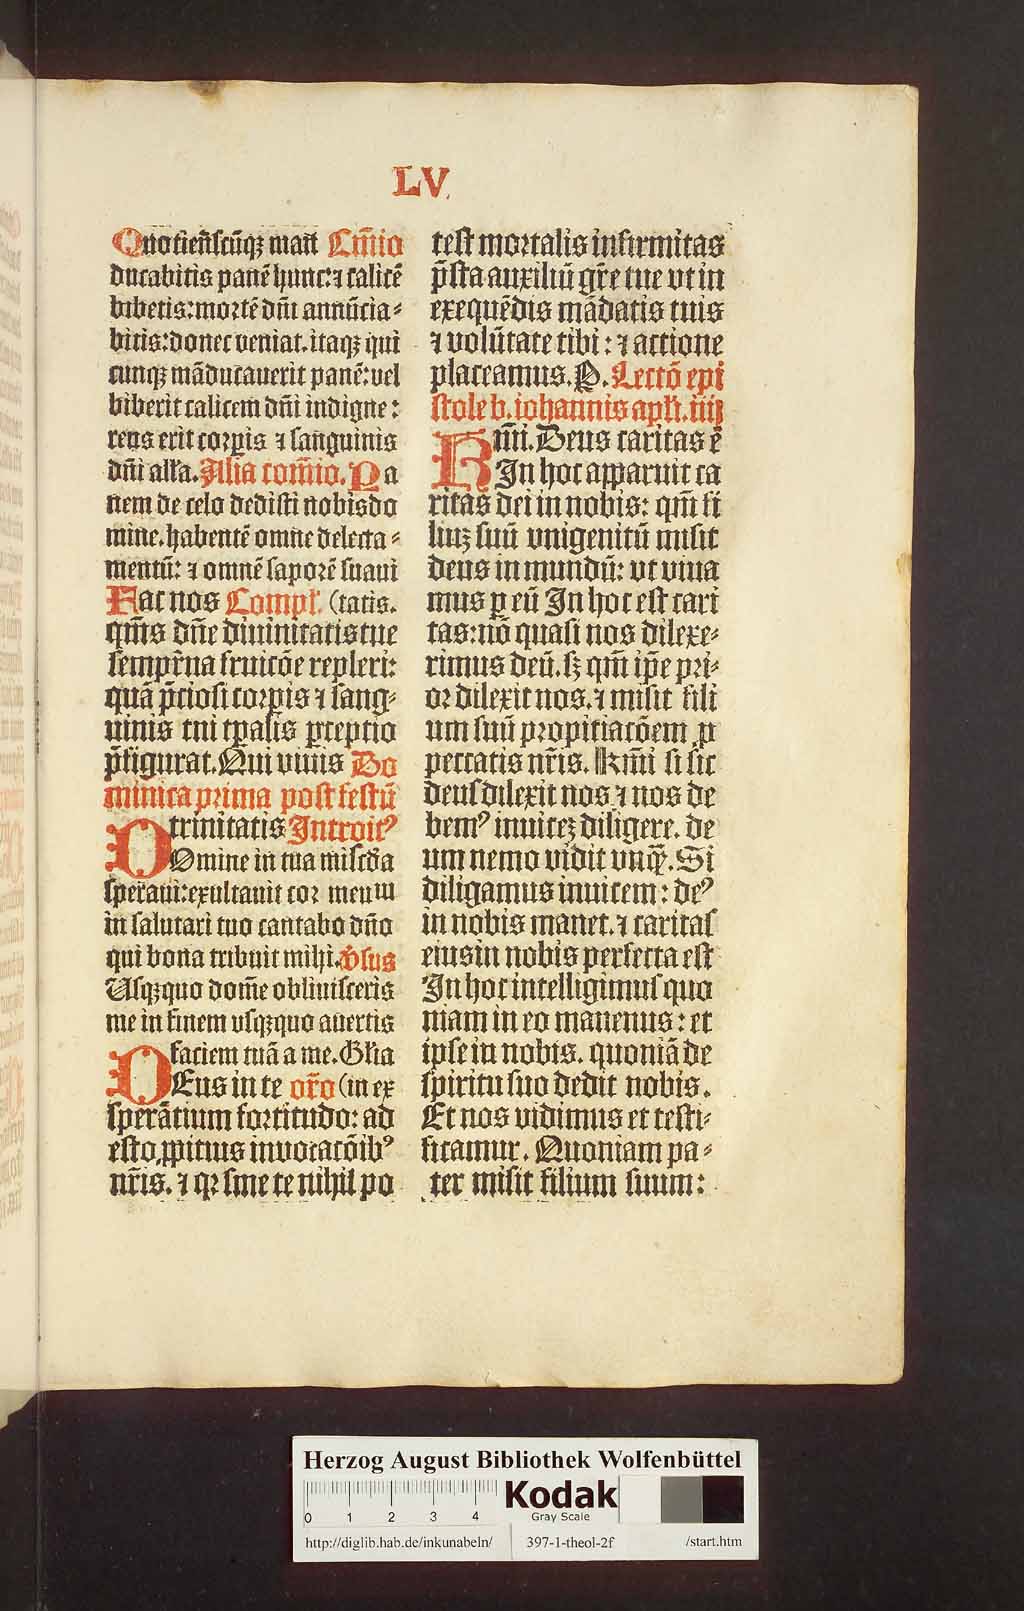 LV.
Quotienscūqꝫ mañ Cm̄io
ducabitis panē hunc: ⁊ calicē
bibetis: mortē dn̄i annūcia⸗
bitis: donec veniat. itaqꝫ qui
cunqꝫ māducauerit panē: vel
biberit calicem dn̄i indigne:
reus erit corꝑis ⁊ sanguinis
dn̄i all'a. Alia com̄io. Pa
nem de celo dedisti nobis do
mine. habentē omne delecta⸗
mentū: ⁊ omnē saporē suaui
Fac nos Compl'. (tatis.
qm̄s dn̄e diuinitatis tue
sempr̄na fruicōe repleri:
quā p̄ciosi corꝑis ⁊ sang⸗
uinis tui tꝑalis ꝑceptio
p̄figurat. Qui viuis Do
minica prima post festū
trinitatis Introitꝰ
DOmine in tua mīscd'ia
speraui: exultauit cor meum
in salutari tuo cantabo dn̄o
qui bona tribuit mihi. v̄sus
Usqꝫquo dom̄e obliuisceris
me in finem vsqꝫquo auertis
faciem tuā a me. Gl'ia
DEus in te or̄o (in ex
sperātium fortitudo: ad
esto ꝓpitius inuocacōibꝰ
nr̄is. ⁊ qꝛ sine te nihil po
test mortalis infirmitas
p̄sta auxiliū gr̄e tue vt in
exequēdis mādatis tuis
⁊ volūtate tibi: ⁊ actione
placeamus. P. Lectō epi
stole b. iohannis apl'i. iiij
Kr̄mi. Deus caritas ē
In hoc apparuit ca
ritas dei in nobis: qm̄ fi
liuꝫ suū vnigenitū misit
deus in mundū: vt viua
mus ꝑ eū In hoc est cari
tas: nō quasi nos dilexe⸗
rimus deū. sꝫ qm̄ ip̄e pri⸗
or dilexit nos. ⁊ misit fili
um suū propitiatōem ꝓ
peccatis nr̄is. Kr̄mi si sic
deus dilexit nos ⁊ nos de
bemꝰ inuiceꝫ diligere. de
um nemo vidit vnqꝫ̄. Si
diligamus inuicem: deꝰ
in nobis manet. ⁊ caritas
eius in nobis perfecta est
In hoc intelligimus quo
niam in eo manenus: et
ipse in nobis. quoniā de
spiritu suo dedit nobis.
Et nos vidimus et testi⸗
ficamur. Quoniam pa⸗
ter misit filium suum:
Herzog August Bibliothek Wolfenbüttel
0 1 2 3 4
Kodak
Gray Scale
http://diglib.hab.de/inkunabeln/ 397-1-theol-2f /start.htm